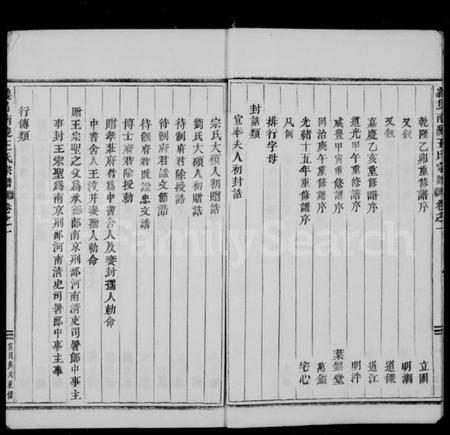 義烏南陵王氏宗譜 卷之一
乾隆乙卯重修譜序 立園
又叙 明瀾
又叙 道傑
嘉慶乙亥重修譜序 道江
道光甲午重修譜序 明洋
咸豐甲寅重修譜序 葉錦堂
同治庚午重修譜序 萬鎰
光緒十五年重修譜序 宅心
凡例
排行字母
封誥類
宣奉夫人初封誥
宗氏大碩人初贈誥
劉氏大碩人初贈誥
待制府君除授誥
待制府君贈謚文節誥
待制府君賜謚忠文誥
博士府君除授勅
贈孝莊府君爲中書舍人及妻封孺人勅命
中書舍人王汶并妻孺人勅命
贈王宗聖之父爲承德郎南京刑部河南清吏司署郎中事主
事封王宗聖爲南京刑部河南清吏司署郎中事主事
行傳類
王氏宗譜 卷之一
Family Search